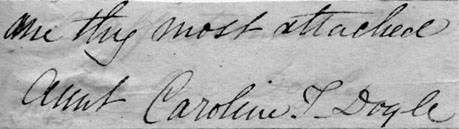 me thy most attached
Aunt Caroline T. Doyle